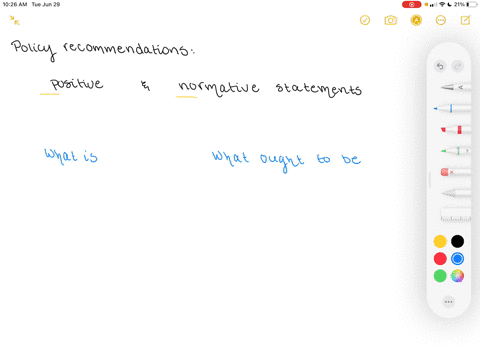 10:26 AM Tue Jun 29
21%
Policy recommendations:
positive & normative statements
What is
What ought to be
A